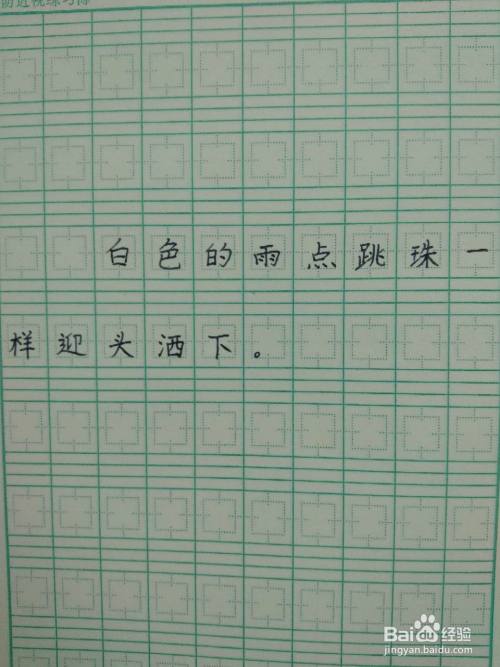 防近视练习簿
白色的雨点跳珠一
样迎头洒下。
Baidu经验
jingyan.baidu.com